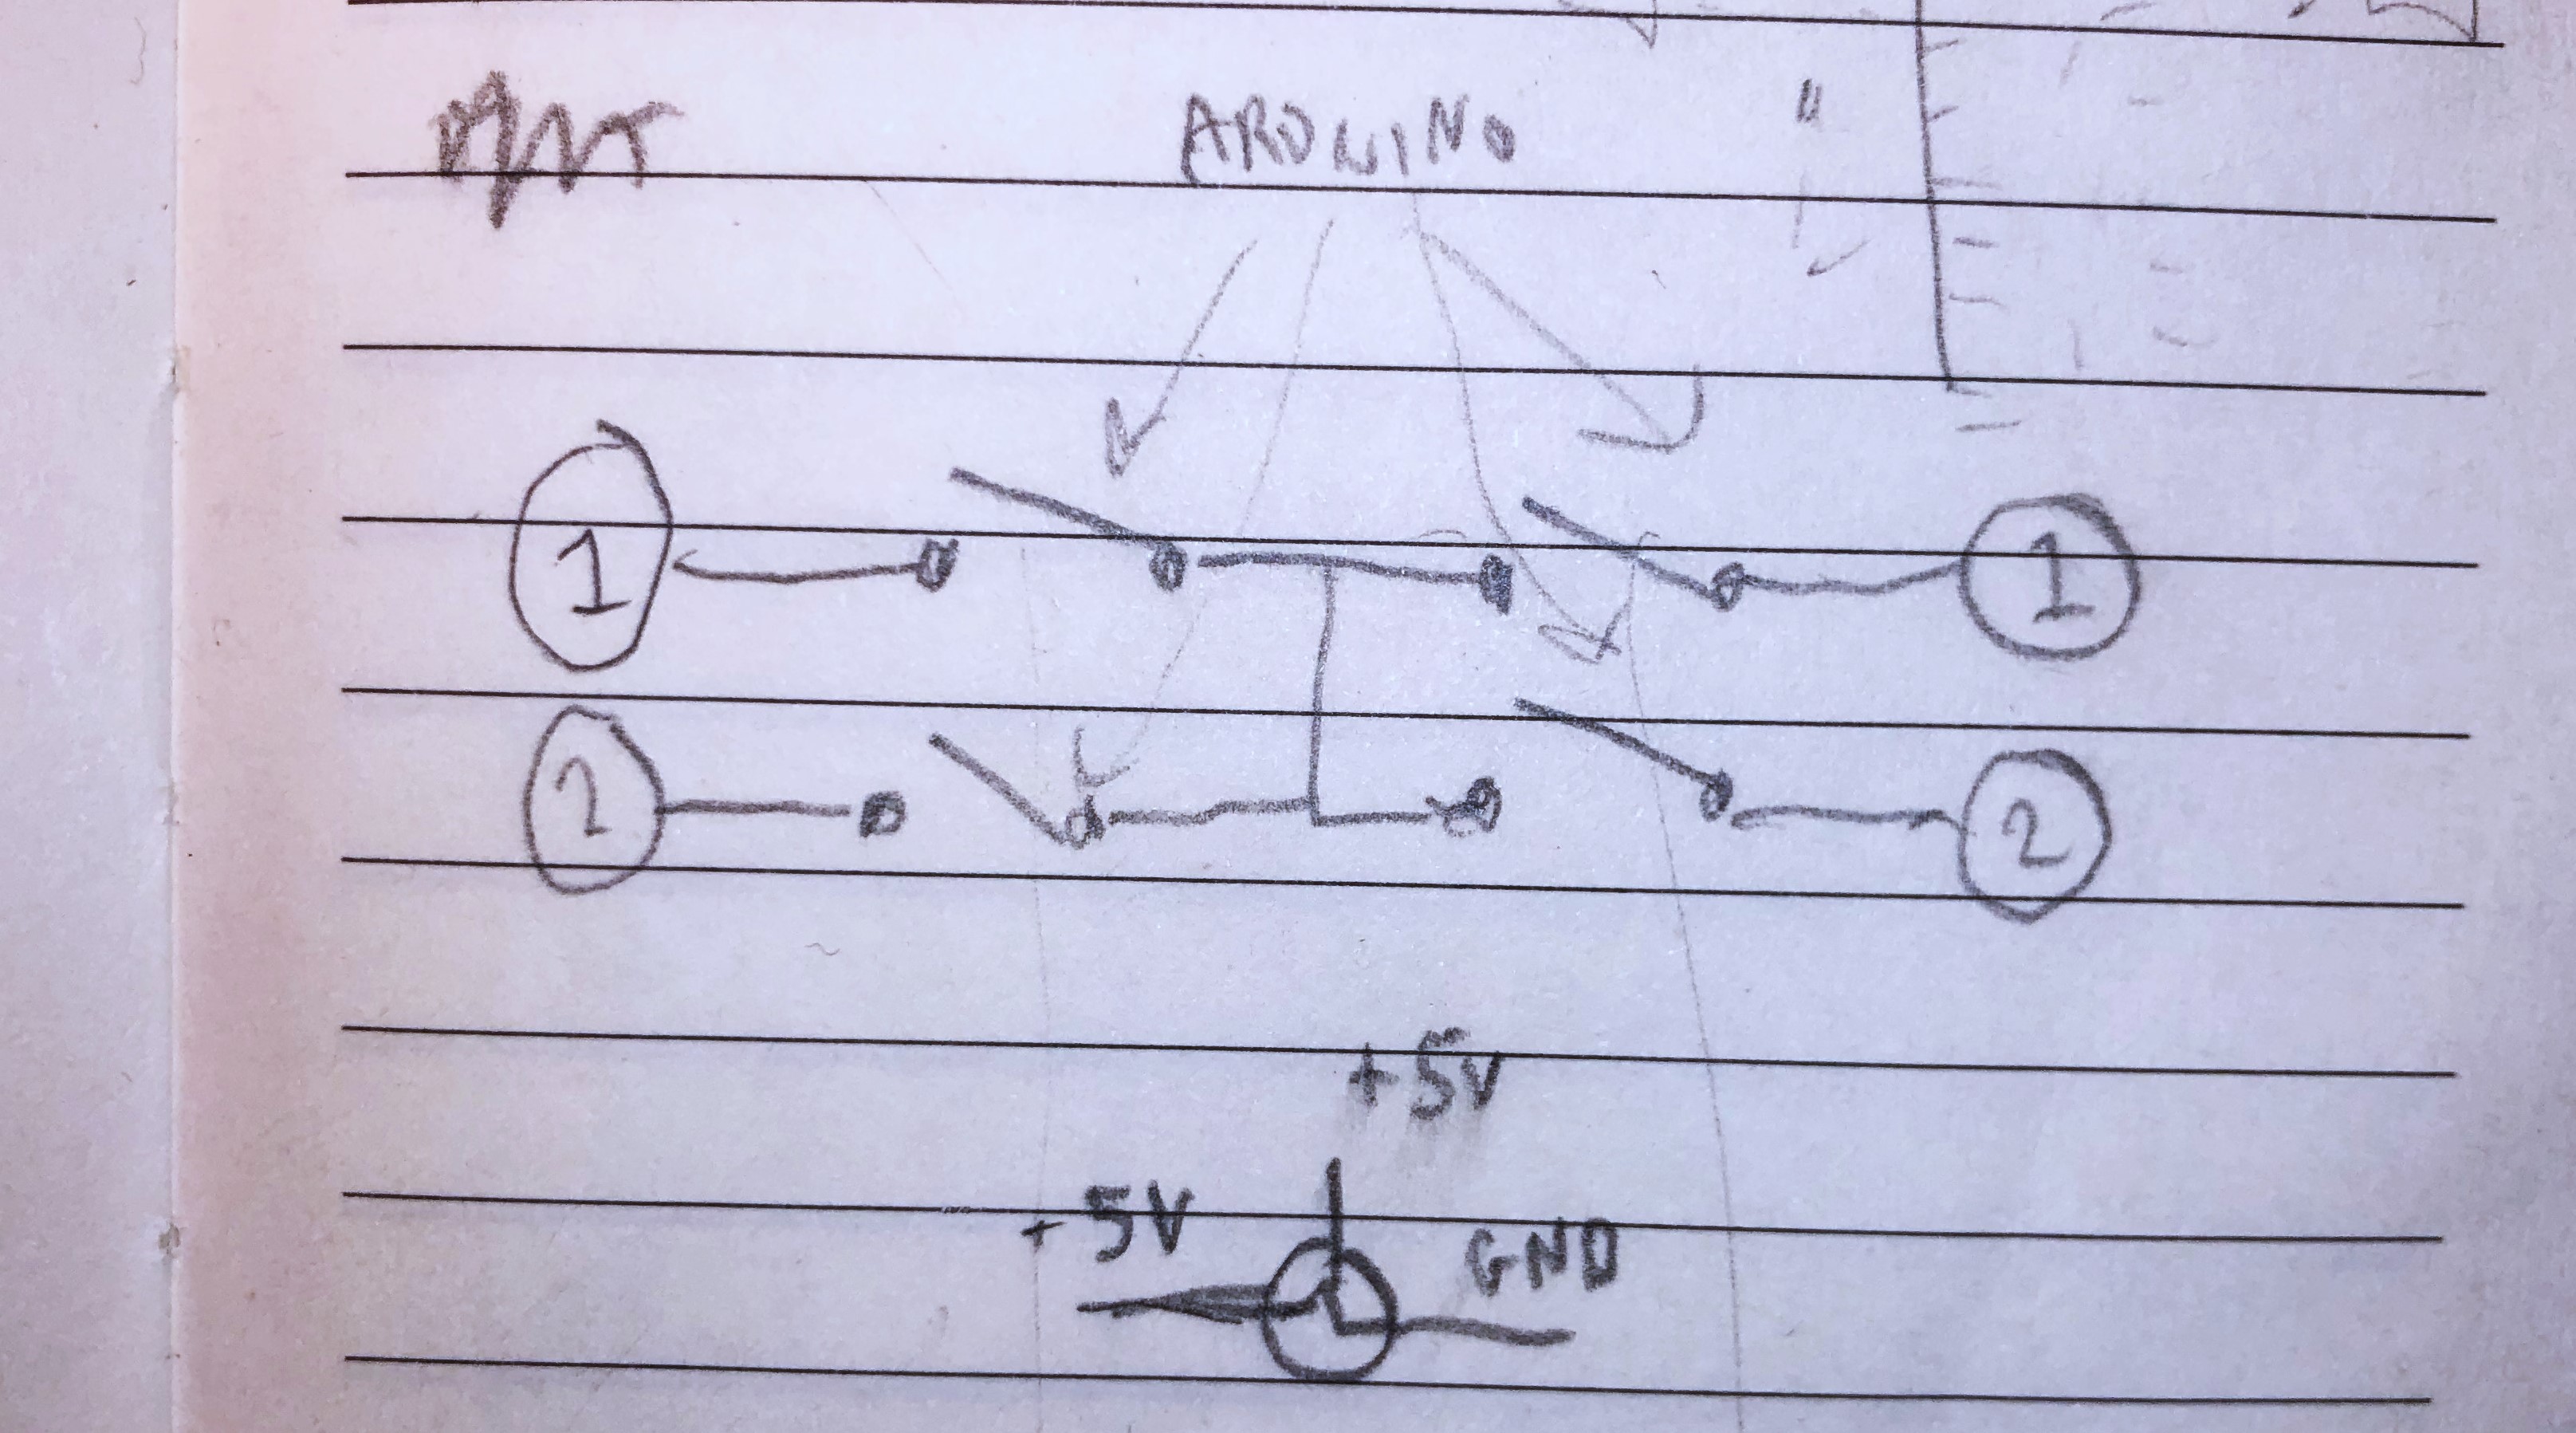 ARDUINO
1 1
2 2
+5V
+5V GND